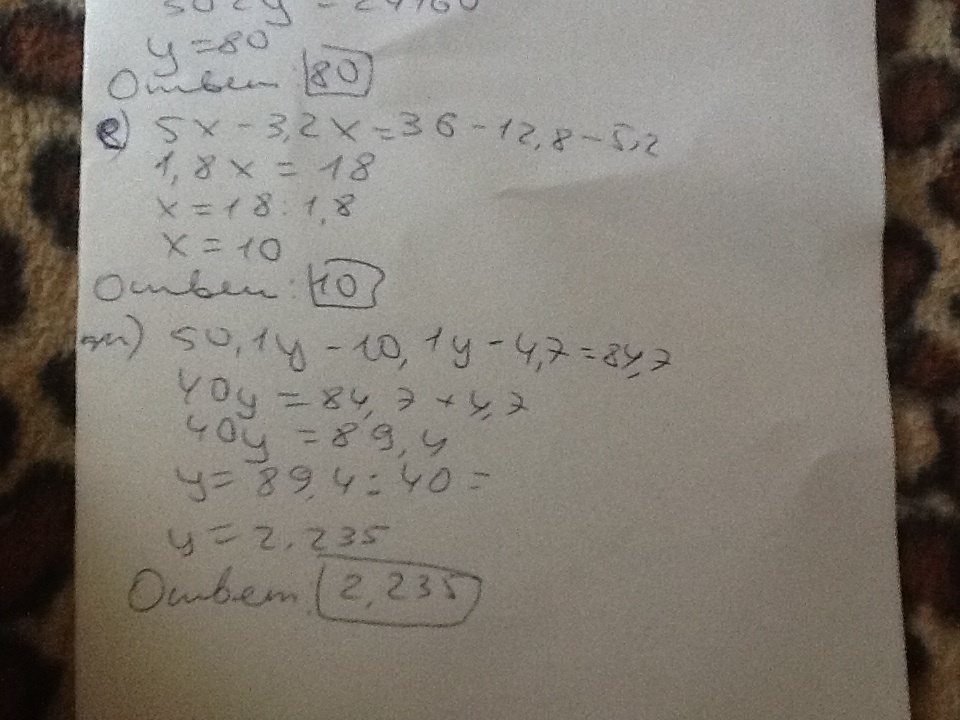 y = 80
Ответ: 80
е) 5x - 3,2x = 36 - 12,8 - 5,2
1,8x = 18
x = 18 : 1,8
x = 10
Ответ: 10
ж) 50,1y - 10,1y - 4,7 = 84,7
40y = 84,7 + 4,7
40y = 89,4
y = 89,4 : 40 =
y = 2.235
Ответ: 2,235